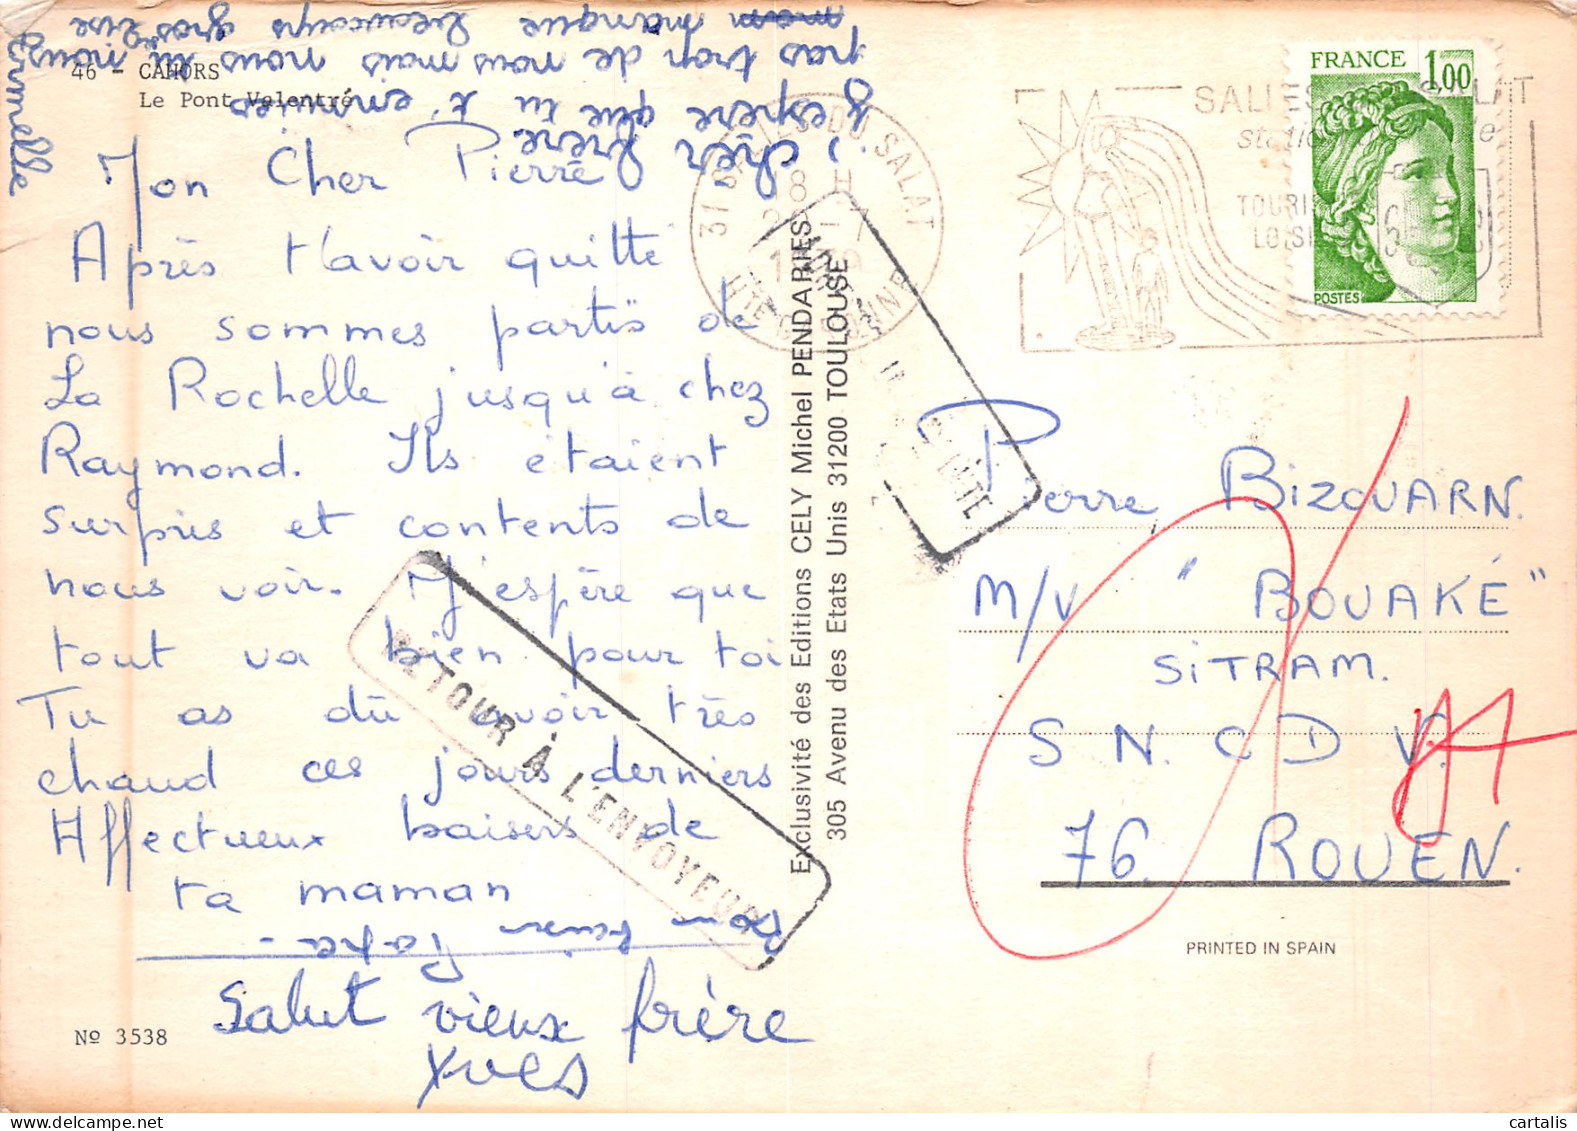 46 - CAHORS
Le Pont Valentré
Mon Cher Pierre
Après t'avoir quitté
nous sommes partis de
La Rochelle jusqu'à chez
Raymond. Ils étaient
surpris et contents de
nous voir. J'espère que
tout va bien pour toi
Tu as dû avoir très
chaud ces jours derniers
Affectueux baisers de
ta maman
Salut vieux frère
Yves
cher frère
J'espère que tu t'ennuies
pas trop de nous mais nous tu nous
manque beaucoup gros bise
Armelle
Nº 3538
RETOUR À L'ENVOYEUR
Exclusivité des Editions CELY Michel PENDARIES
305 Avenu des Etats Unis 31200 TOULOUSE
31 SALIES DU SALAT
HTE GARONNE
SALIES DU SALAT
TOURISME
LOISIRS
FRANCE 1,00
POSTES
Pierre BIZOUARN.
M/V "BOUAKÉ"
SITRAM.
S N C D V.
76. ROUEN.
PRINTED IN SPAIN
cartalis.com